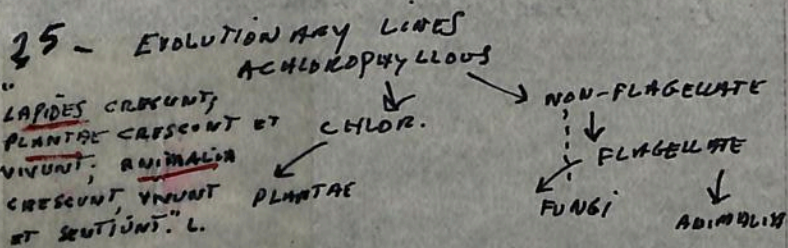 25 - EVOLUTIONARY LINES
ACHLOROPHYLLOUS
"LAPIDES CRESCUNT;
PLANTAE CRESCUNT ET
VIVUNT; ANIMALIA
CRESCUNT, VIVUNT
ET SENTIUNT." L.
CHLOR.
PLANTAE
NON-FLAGELLATE
FLAGELLATE
FUNGI
ANIMALIA